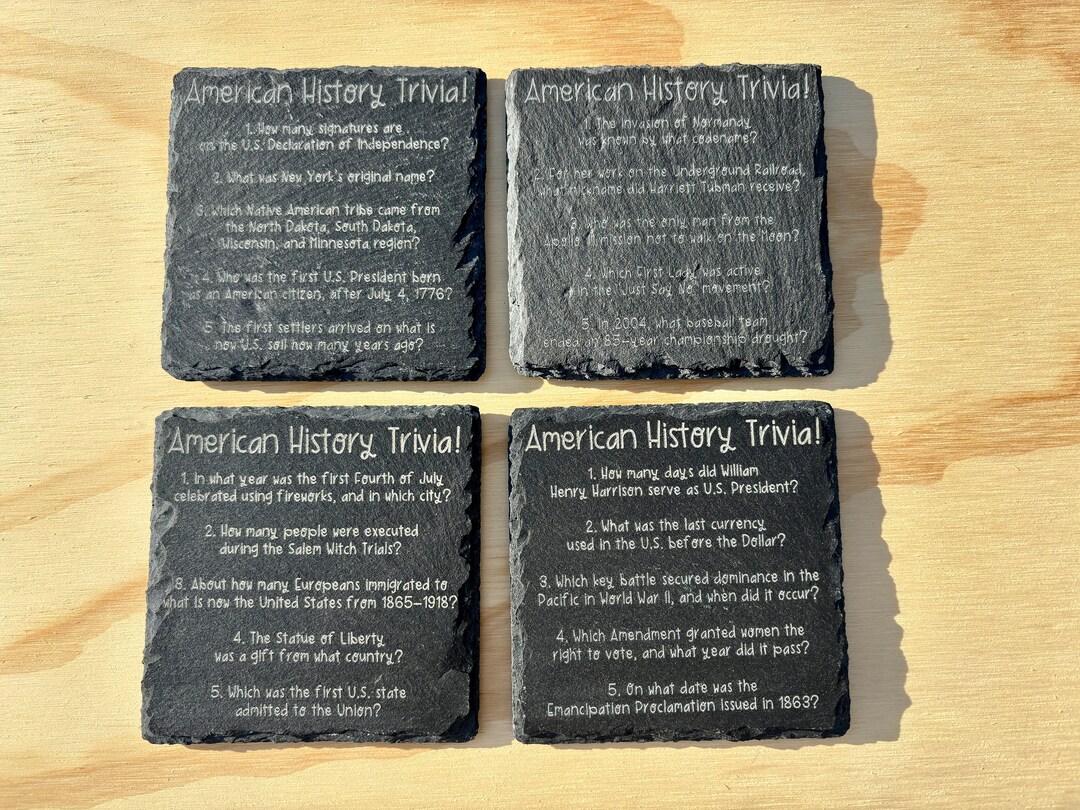 American History Trivia!
1. How many signatures are
on the U.S. Declaration of Independence?
2. What was New York's original name?
3. Which Native American tribe came from
the North Dakota, South Dakota,
Wisconsin, and Minnesota region?
4. Who was the first U.S. President born
as an American citizen, after July 4, 1776?
5. The first settlers arrived on what is
now U.S. soil how many years ago?
American History Trivia!
1. The invasion of Normandy
was known by what codename?
2. For her work on the Underground Railroad,
what nickname did Harriett Tubman receive?
3. Who was the only man from the
Apollo 11 mission not to walk on the Moon?
4. Which First Lady was active
in the "Just Say No" movement?
5. In 2004, what baseball team
ended an 85-year championship drought?
American History Trivia!
1. In what year was the first Fourth of July
celebrated using fireworks, and in which city?
2. How many people were executed
during the Salem Witch Trials?
3. About how many Europeans immigrated to
what is now the United States from 1865-1918?
4. The Statue of Liberty
was a gift from what country?
5. Which was the first U.S. state
admitted to the Union?
American History Trivia!
1. How many days did William
Henry Harrison serve as U.S. President?
2. What was the last currency
used in the U.S. before the Dollar?
3. Which key battle secured dominance in the
Pacific in World War II, and when did it occur?
4. Which Amendment granted women the
right to vote, and what year did it pass?
5. On what date was the
Emancipation Proclamation issued in 1863?